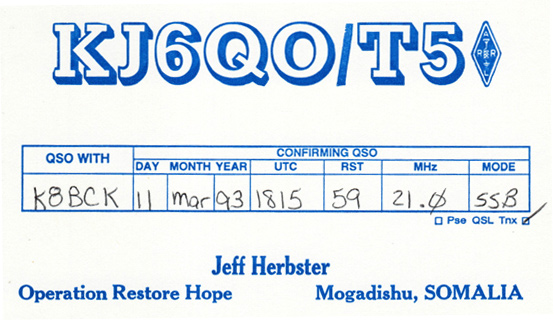 KJ6QO/T5 ARRL
CONFIRMING QSO
QSO WITH DAY MONTH YEAR UTC RST MHz MODE
K8BCK 11 Mar 93 1815 59 21.0 SSB
Pse QSL Tnx
Jeff Herbster
Operation Restore Hope Mogadishu, SOMALIA